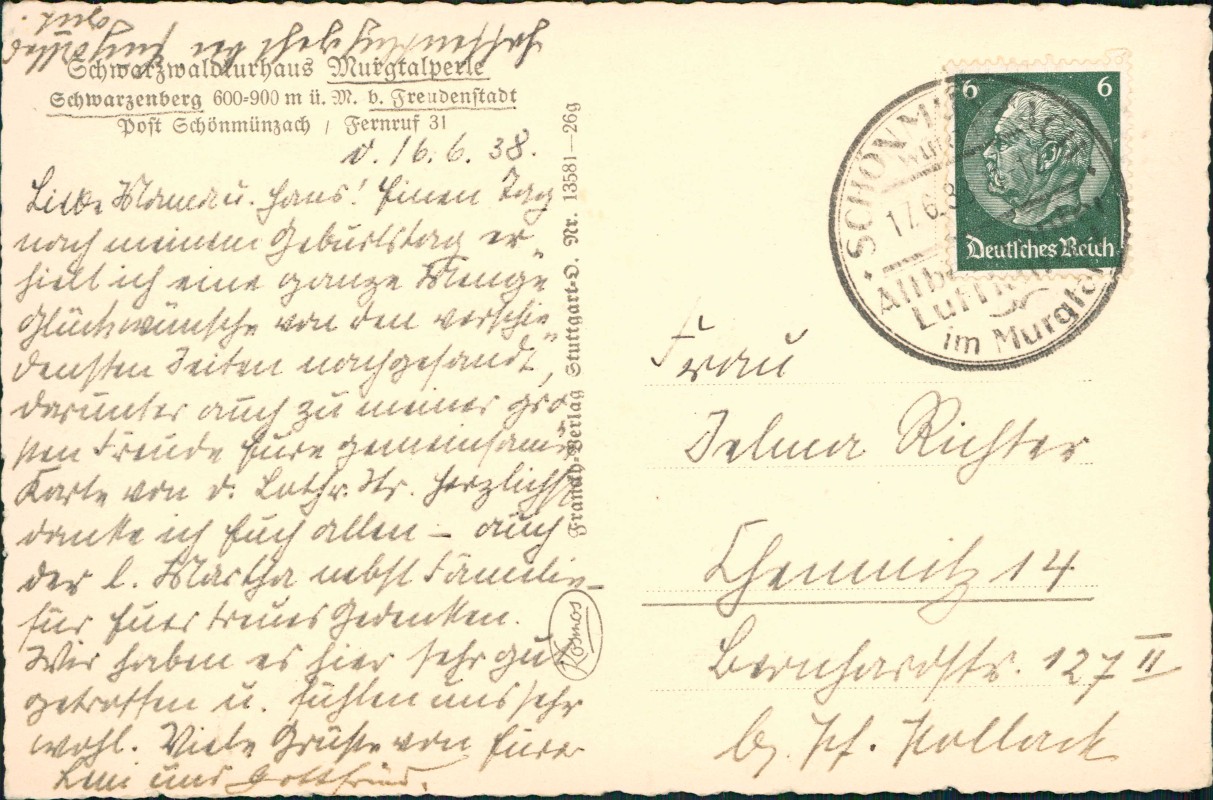 Schwarzwaldkurhaus Murgtalperle
Schwarzenberg 600-900 m ü. M. b. Freudenstadt
Post Schönmünzach / Fernruf 31
d. 16. 6. 38.
Liebe Mama u. Hans! Einen Tag
nach meinem Geburtstag er-
hielt ich eine ganze Menge
Glückwünsche von den verschie-
densten Seiten nachgesandt,
darunter auch zu meiner gro-
ßen Freude Eure gemeinsame
Karte von d. Lothr. Str. Herzlichst
danke ich Euch allen – auch
der l. Martha nebst Familie –
für Euer treues Gedenken.
Wir haben es hier sehr gut
getroffen u. fühlen uns sehr
wohl. Viele Grüße von Eurer
Leni und Gottfried.
Franckh-Verlag Stuttgart-O. Nr. 13581—26g
Kosmos
6 6
Deutsches Reich
SCHÖNM
17.6.38
im Murgtal
Frau
Selma Richter
Chemnitz 14
Bernhardstr. 127 II
b/ Hollack